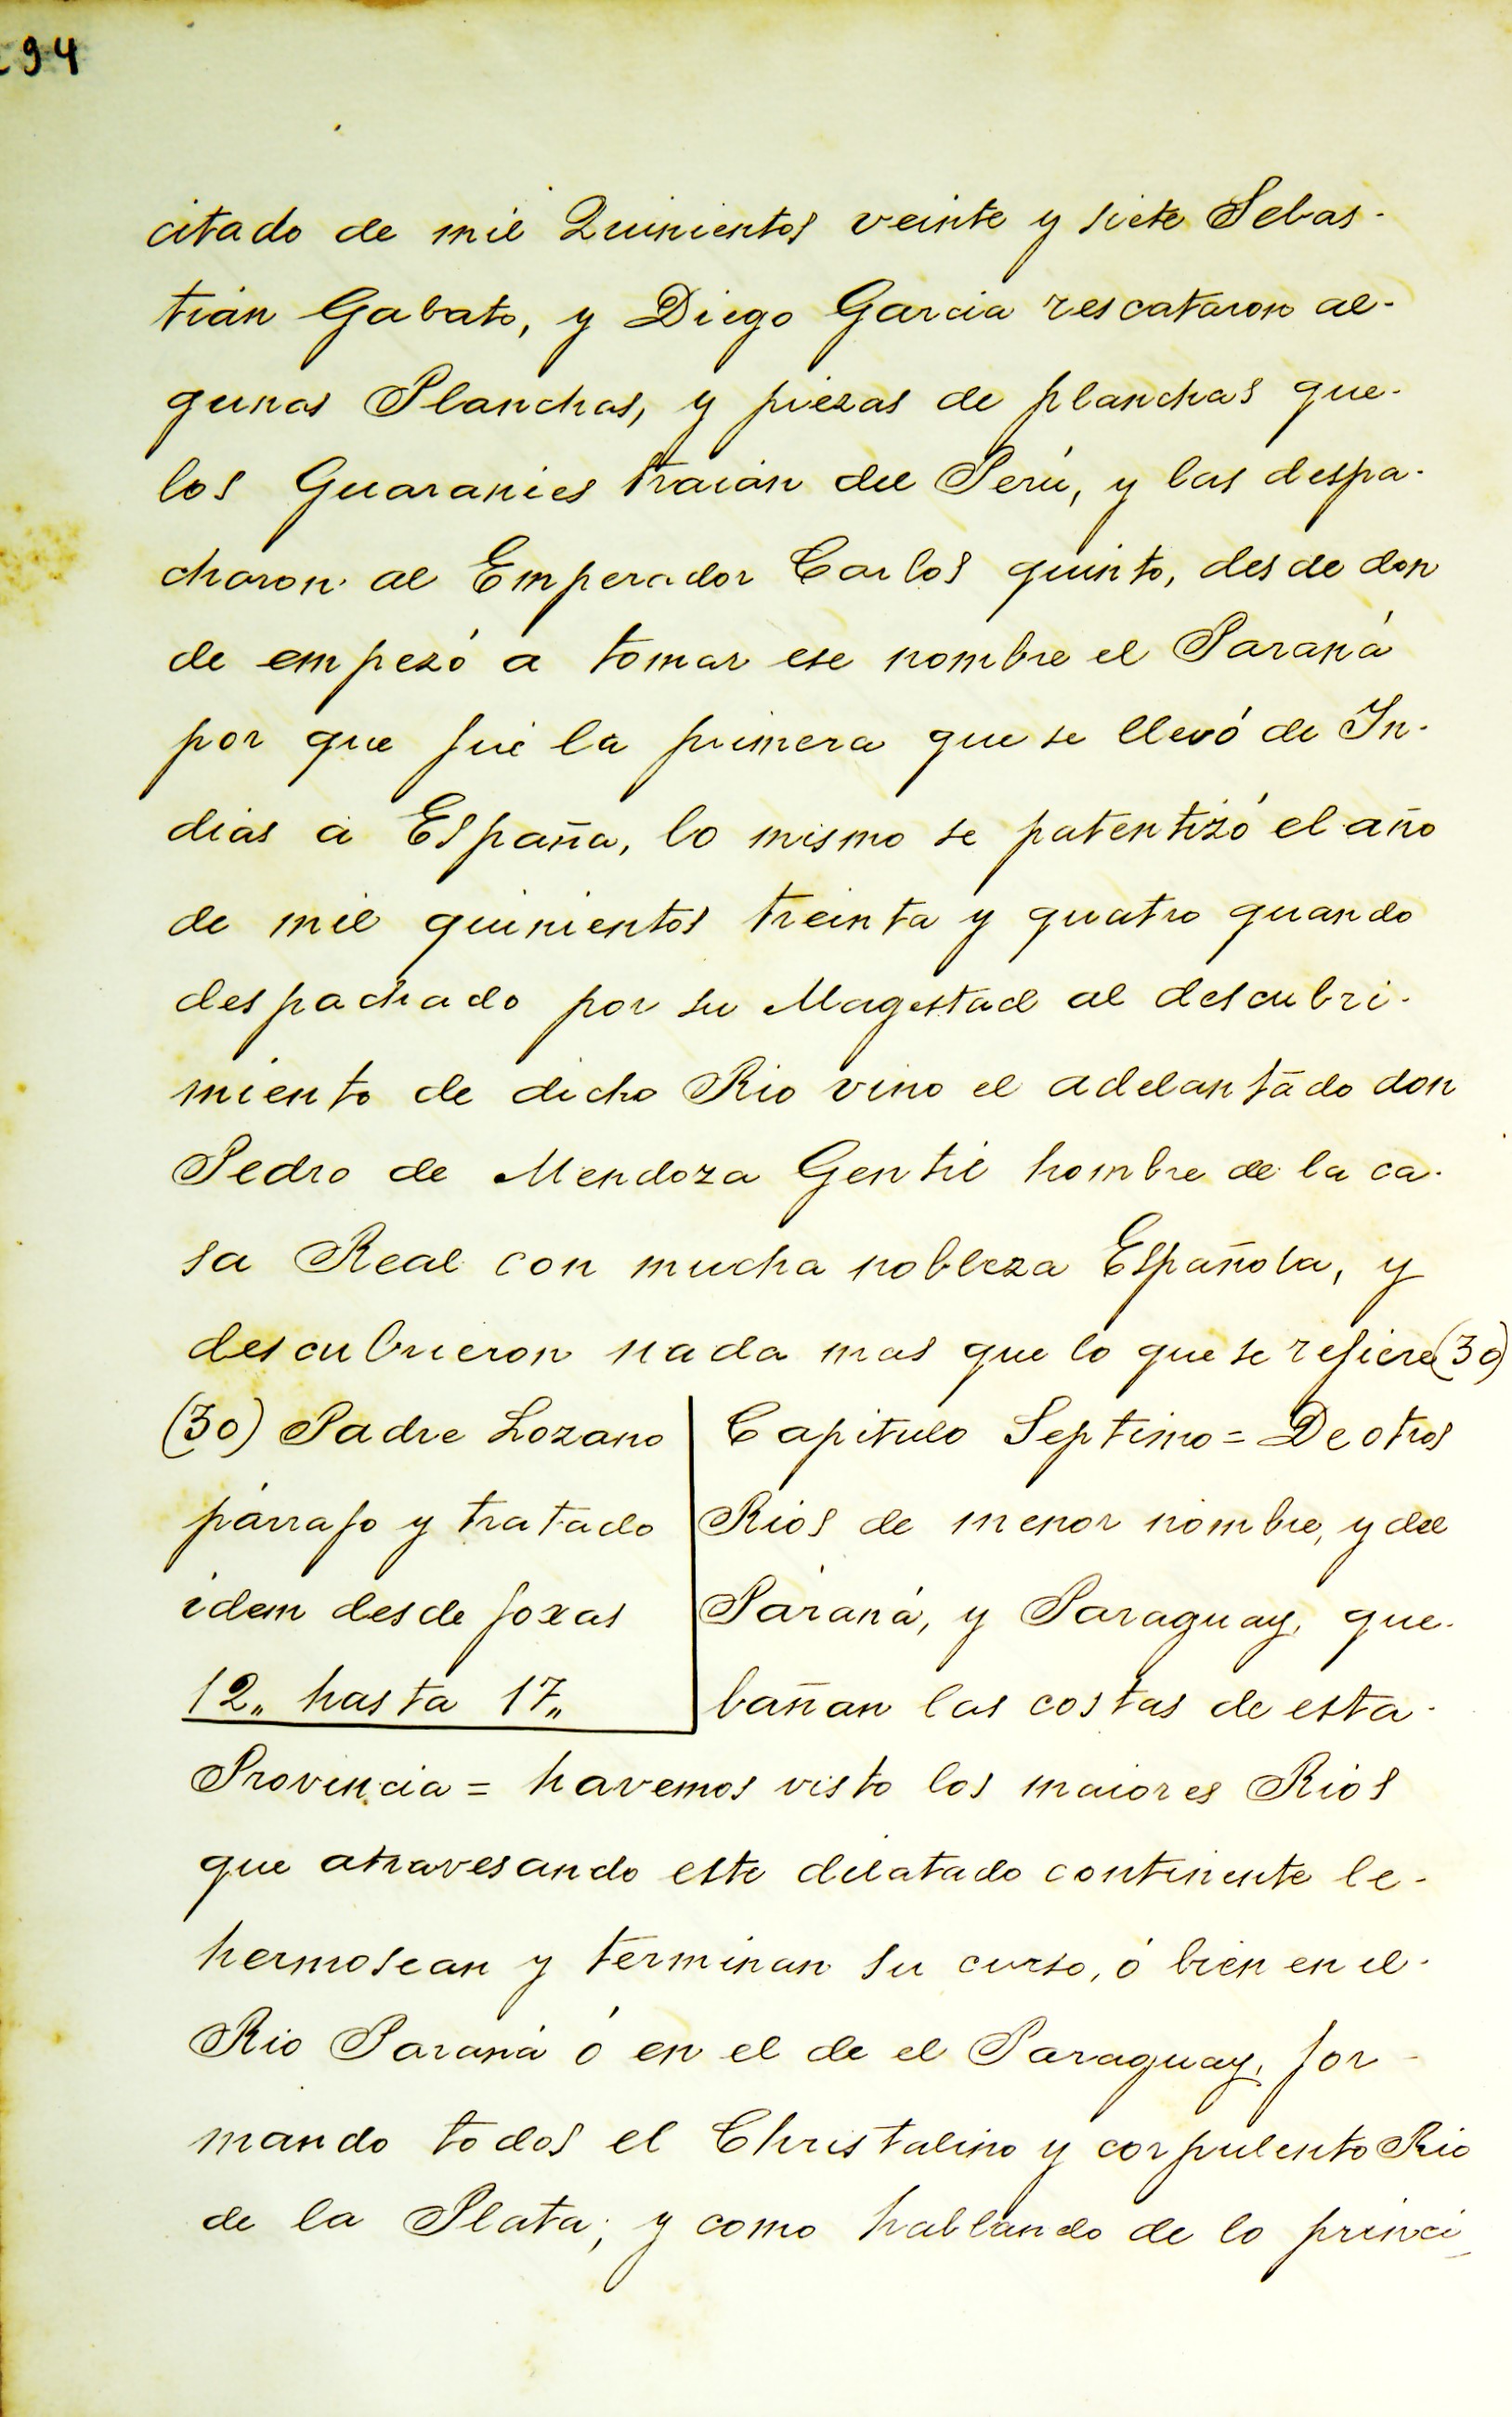 94
citado de mil Quinientos veinte y siete Sebas-
tián Gabato, y Diego Garcia rescataron al-
gunas Planchas, y piezas de planchas que-
los Guaranies traián del Perú, y las despa-
charon al Emperador Carlos quinto, desde don
de empezó a tomar ese nombre el Paraná
por que fué la primera que se llevó de In-
dias a España, lo mismo se patentizó el año
de mil quinientos treinta y quatro quando
despachado por su Magestad al descubri-
miento de dicho Rio vino el adelantado don
Pedro de Mendoza Gentil hombre de la ca-
sa Real con mucha nobleza Española, y
descubrieron nada mas que lo que se refiere (30)
(30) Padre Lozano
párrafo y tratado
idem desde foxas
12„ hasta 17„
Capitulo Septimo = De otros
Rios de menor nombre, y del
Paraná, y Paraguay, que-
bañan las costas de esta-
Provincia = havemos visto los maiores Rios
que atravesando este dilatado continente le-
hermosean y terminan su curso, ó bien en el-
Rio Paraná ó en el de el Paraguay, for-
mando todos el Christalino y corpulento Rio
de la Plata; y como hablando de lo princi_